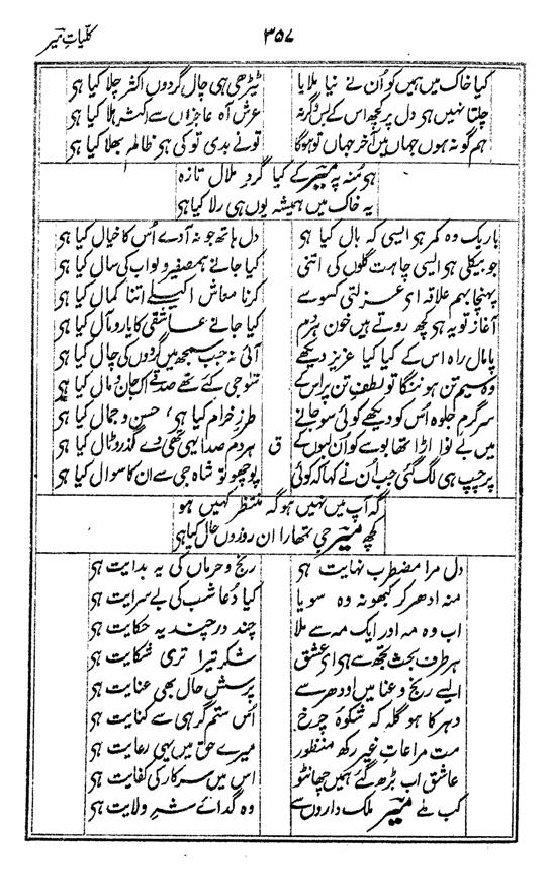 کلیات میر
۳۵۷
کیا خاک میں ہمیں کو اُن نے نیا ملایا ٹیڑھی ہی چال گردوں اکثر چلا کیا ہی
چلتا نہیں ہی دل پر کچھ اس کے بس وگرنہ عرش آہ عاجزاں سے اکثر ہلا کیا ہی
ہم گو نہ ہوں جہاں میں آخر جہاں تو ہوگا تونے بدی تو کی ہی ظالم بھلا کیا ہی
ہی مُنہ پہ میر کے کیا گردِ ملال تازہ
یہ خاک میں ہمیشہ یوں ہی رلا کیا ہی
باریک وہ کمر ہی ایسی کہ بال کیا ہی دل ہاتھ جو نہ آوے اُس کا خیال کیا ہی
جو بیکلی ہی ایسی چاہت گلوں کی اتنی کیا جانے ہم صفیر و لواب کی سال کیا ہی
پہنچا بہم علاقہ ای عزلتی کسو سے کرنا معاش اکیلے اتنا کمال کیا ہی
آغاز تو یہ ہی کچھ روتے ہیں خون ہردم کیا جانے عاشقی کا یارو مآل کیا ہی
پامال راہ اس کے کیا کیا عزیز دیکھے آئی نہ جب سمجھ میں گردوں کی چال کیا ہی
وہ سیم تن ہو ننگا تو لطفِ تن پر اس کے سو جی گئے تھے صدقے اک جان و مال کیا ہی
سرگرم جلوہ اُس کو دیکھے کوئی سو جانے طرزِ خرام کیا ہی، حسن و جمال کیا ہی
میں بے نوا اڑا تھا بوسے کو اُن لبوں کے ق ہردم صدا یہی تھی دے گذرو ٹال کیا ہی
پر چپ ہی لگ گئی جب اُن نے کہا کہ کوئی پوچھو تو شاہ جی سے ان کا سوال کیا ہی
گہ آپ میں نہیں ہو گہ منتظر کہیں ہو
کچھ میر جی تمھارا ان روزوں حال کیا ہی
دل مرا مضطرب نہایت ہی رنج و حرماں کی یہ بدایت ہی
منہ ادھر کر کبھو نہ وہ سویا کیا دُعا شب کی بے سرایت ہی
اب وہ مہ اور ایک مہ سے ملا چند در چند یہ حکایت ہی
ہر طرف بحث تجھ سے ہی ای عشق شکر تیرا تری شکایت ہی
ایسے رنج و عنا میں اودھر سے پرسشِ حال بھی عنایت ہی
دہر کا ہو گلہ کہ شکوۂ چرخ اُس ستمگر ہی سے کنایت ہی
مت مراعاتِ غیر رکھ منظور میرے حق میں یہی رعایت ہی
عاشق اب بڑھ گئے ہمیں چھانٹو اس میں سرکار کی کفایت ہی
کب ملے میر ملک داروں سے وہ گدائے شہِ ولایت ہی